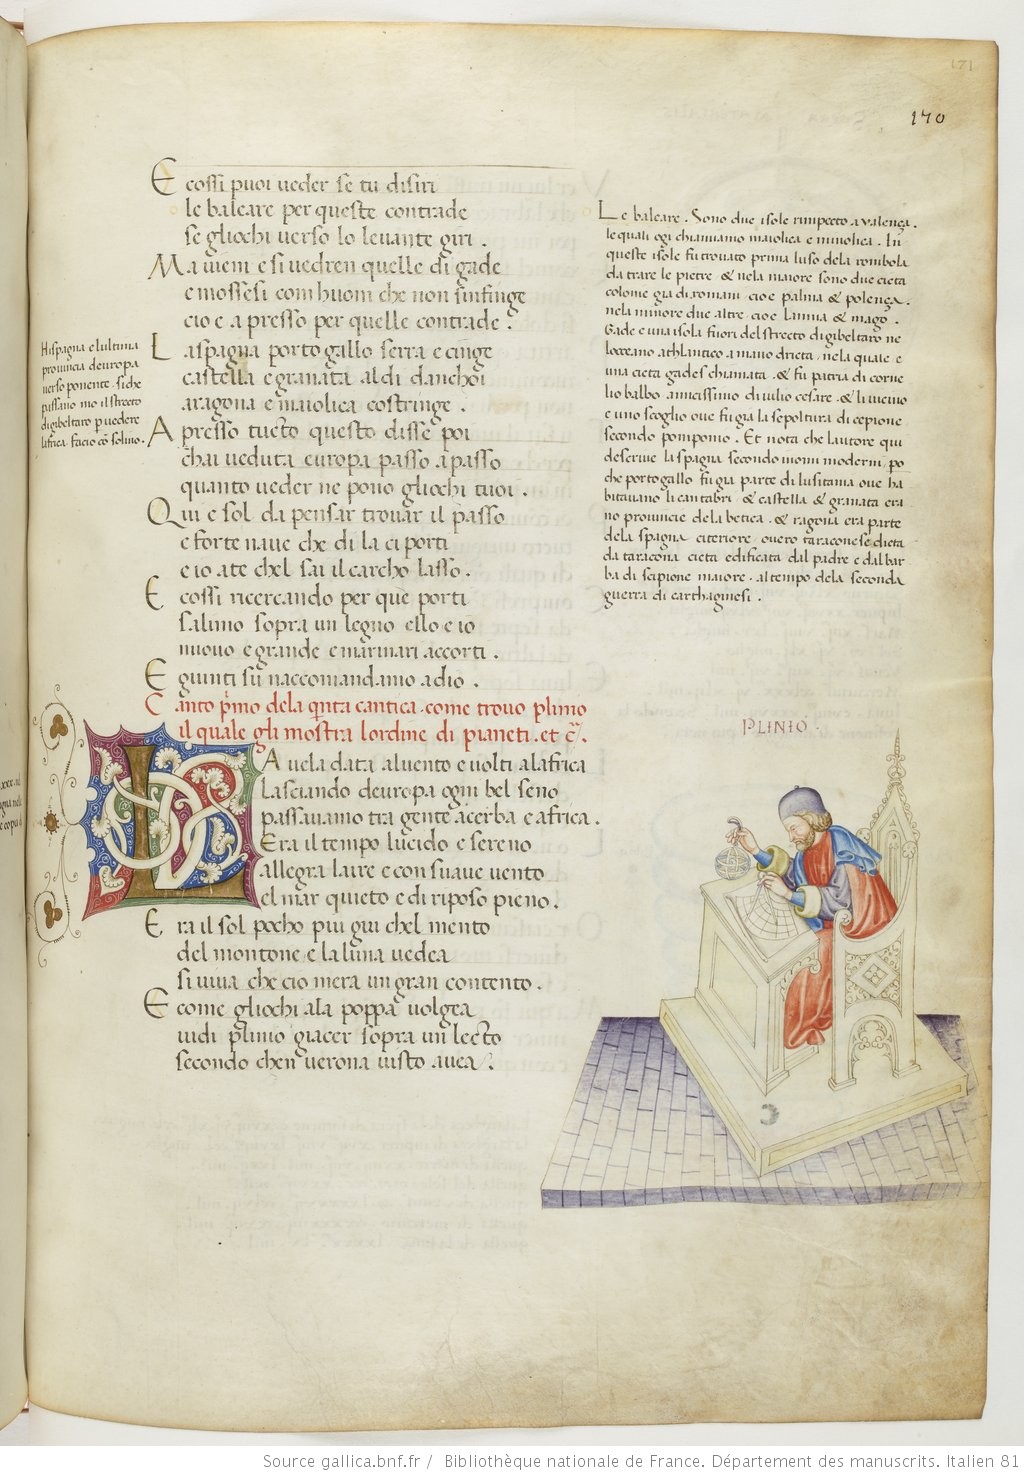 171
170
E cossi puoi ueder se tu disiri
le baleare per queste contrade
se gliochi uerso lo leuante giri .
Ma uieni e si uedren quelle di gade
e mossesi com huom che non sinfinge
cio e a presso per quelle contrade .
La spagna portogallo serra e cinge
castella e granata al di danchoi
aragona e maiolica costringe .
A presso tucto questo disse poi
chai ueduta europa passo a passo
quanto ueder ne pono gliochi tuoi .
Qui e sol da pensar trouar il passo
e forte naue che di la ci porti
e io a te chel sai il carcho lasso .
E cossi ricercando per que porti
salimo sopra un legno ello e io
nuouo e grande e marinari accorti .
E giunti su naccomandamo a dio .
Canto p̃mo dela q̃nta cantica . come trouo plinio
il quale gli mostra lordine di pianeti . et c̃ .
LA uela data al uento e uolti alafrica
Lasciando deuropa ogni bel seno
passauamo tra gente acerba e africa .
Era il tempo lucido e sereno
allegra laire e con suaue uento
el mar quieto e di riposo pieno .
Era il sol pocho piu gui chel mento
del montone e la luna uedea
si uiua che cio mera un gran contento .
E come gliochi ala poppa uolgea
uidi plinio giacer sopra un lecto
secondo chen uerona uisto auea .
Hispagna e lultima
prouincia deuropa
uerso ponente . siche
passano mo il strecto
digibeltaro p uedere
lafrica . facio cõ solino .
Le baleare . Sono due isole rimpecto a valença .
le quali ogi chiamamo maiolica e minolica . In
queste isole fu trouato prima luso dela rombola
da trare le pietre & nela maiore sono due cieta
colonie gia di romani cioe palma & polença .
nela minore due altre . cioe lamna & mago .
Gade e una isola fuori del strecto digibeltaro ne
loceano athlantico a mano drieta . nela quale e
una cieta gades chiamata . & fu patria di corne
lio balbo amicissimo di iulio cesare . & li uicino
e uno scoglio oue fu gia la sepoltura di cepione
secondo pomponio . Et nota che lautore qui
descriue la spagna secondo nomi moderni . po
che portogallo fu gia parte di lusitania oue ha
bitauano li cantabri . & castella & granata era
no prouincie dela betica . & ragona era parte
dela spagna citeriore . ouero taraconese dicta
da taracona cieta edificata dal padre e dal bar
ba di scipione maiore . al tempo dela seconda
guerra di carthaginesi .
PLINIO .
Source gallica.bnf.fr / Bibliothèque nationale de France. Département des manuscrits. Italien 81